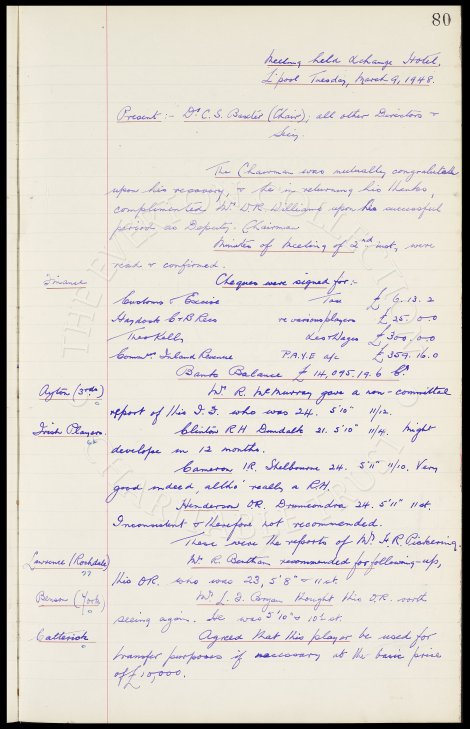 80
Meeting held Xchange Hotel,
L'pool Tuesday, March 9, 1948.
Present :- Dr C. S. Baxter (Chair); all other Directors &
Secy
The Chairman was mutually congratulated
upon his recovery, & he in returning his thanks,
complimented Mr W.R. Williams upon his successful
period as Deputy-Chairman
Minutes of Meeting of 2nd inst, were
read & confirmed.
Finance Cheques were signed for:-
Customs & Excise Tax £ 9. 13. 2
Haydock C & B Recs re various players £ 25. 0. 0
Theo Kelly Les & Wages £ 300. 0. 0
Commrs Inland Revenue P.A.Y.E a/c £ 359. 16. 0
Bank Balance £ 14,095. 19. 6 Cr
Ayton (3rds) Mr. R. McMurray gave a non-committal
report of this I.F. who was 24. 5'10" 11/12.
Irish Players. Clinton R H Dundalk 21. 5'10" 11/4. Might
develope in 12 months.
Cameron I R. Shelbourne 24. 5'11" 11/10. Very
good indeed, altho' really a R.H.
Henderson O.R. Drumcondra 24. 5'11" 11 st.
Inconsistent & therefore not recommended.
These were the reports of Mr F. R. Pickering.
Lawrence (Rochdale) Mr. R. Bartham recommended for following-up,
this OR. who was 23, 5'8" & 11 st.
Benson (York) Mr. L. J. thought this O.R. worth
seeing again. He was 5'10" & 10½ st.
Catterick Agreed that this player be used for
transfer purposes if necessary at the basic price
of £10,000.